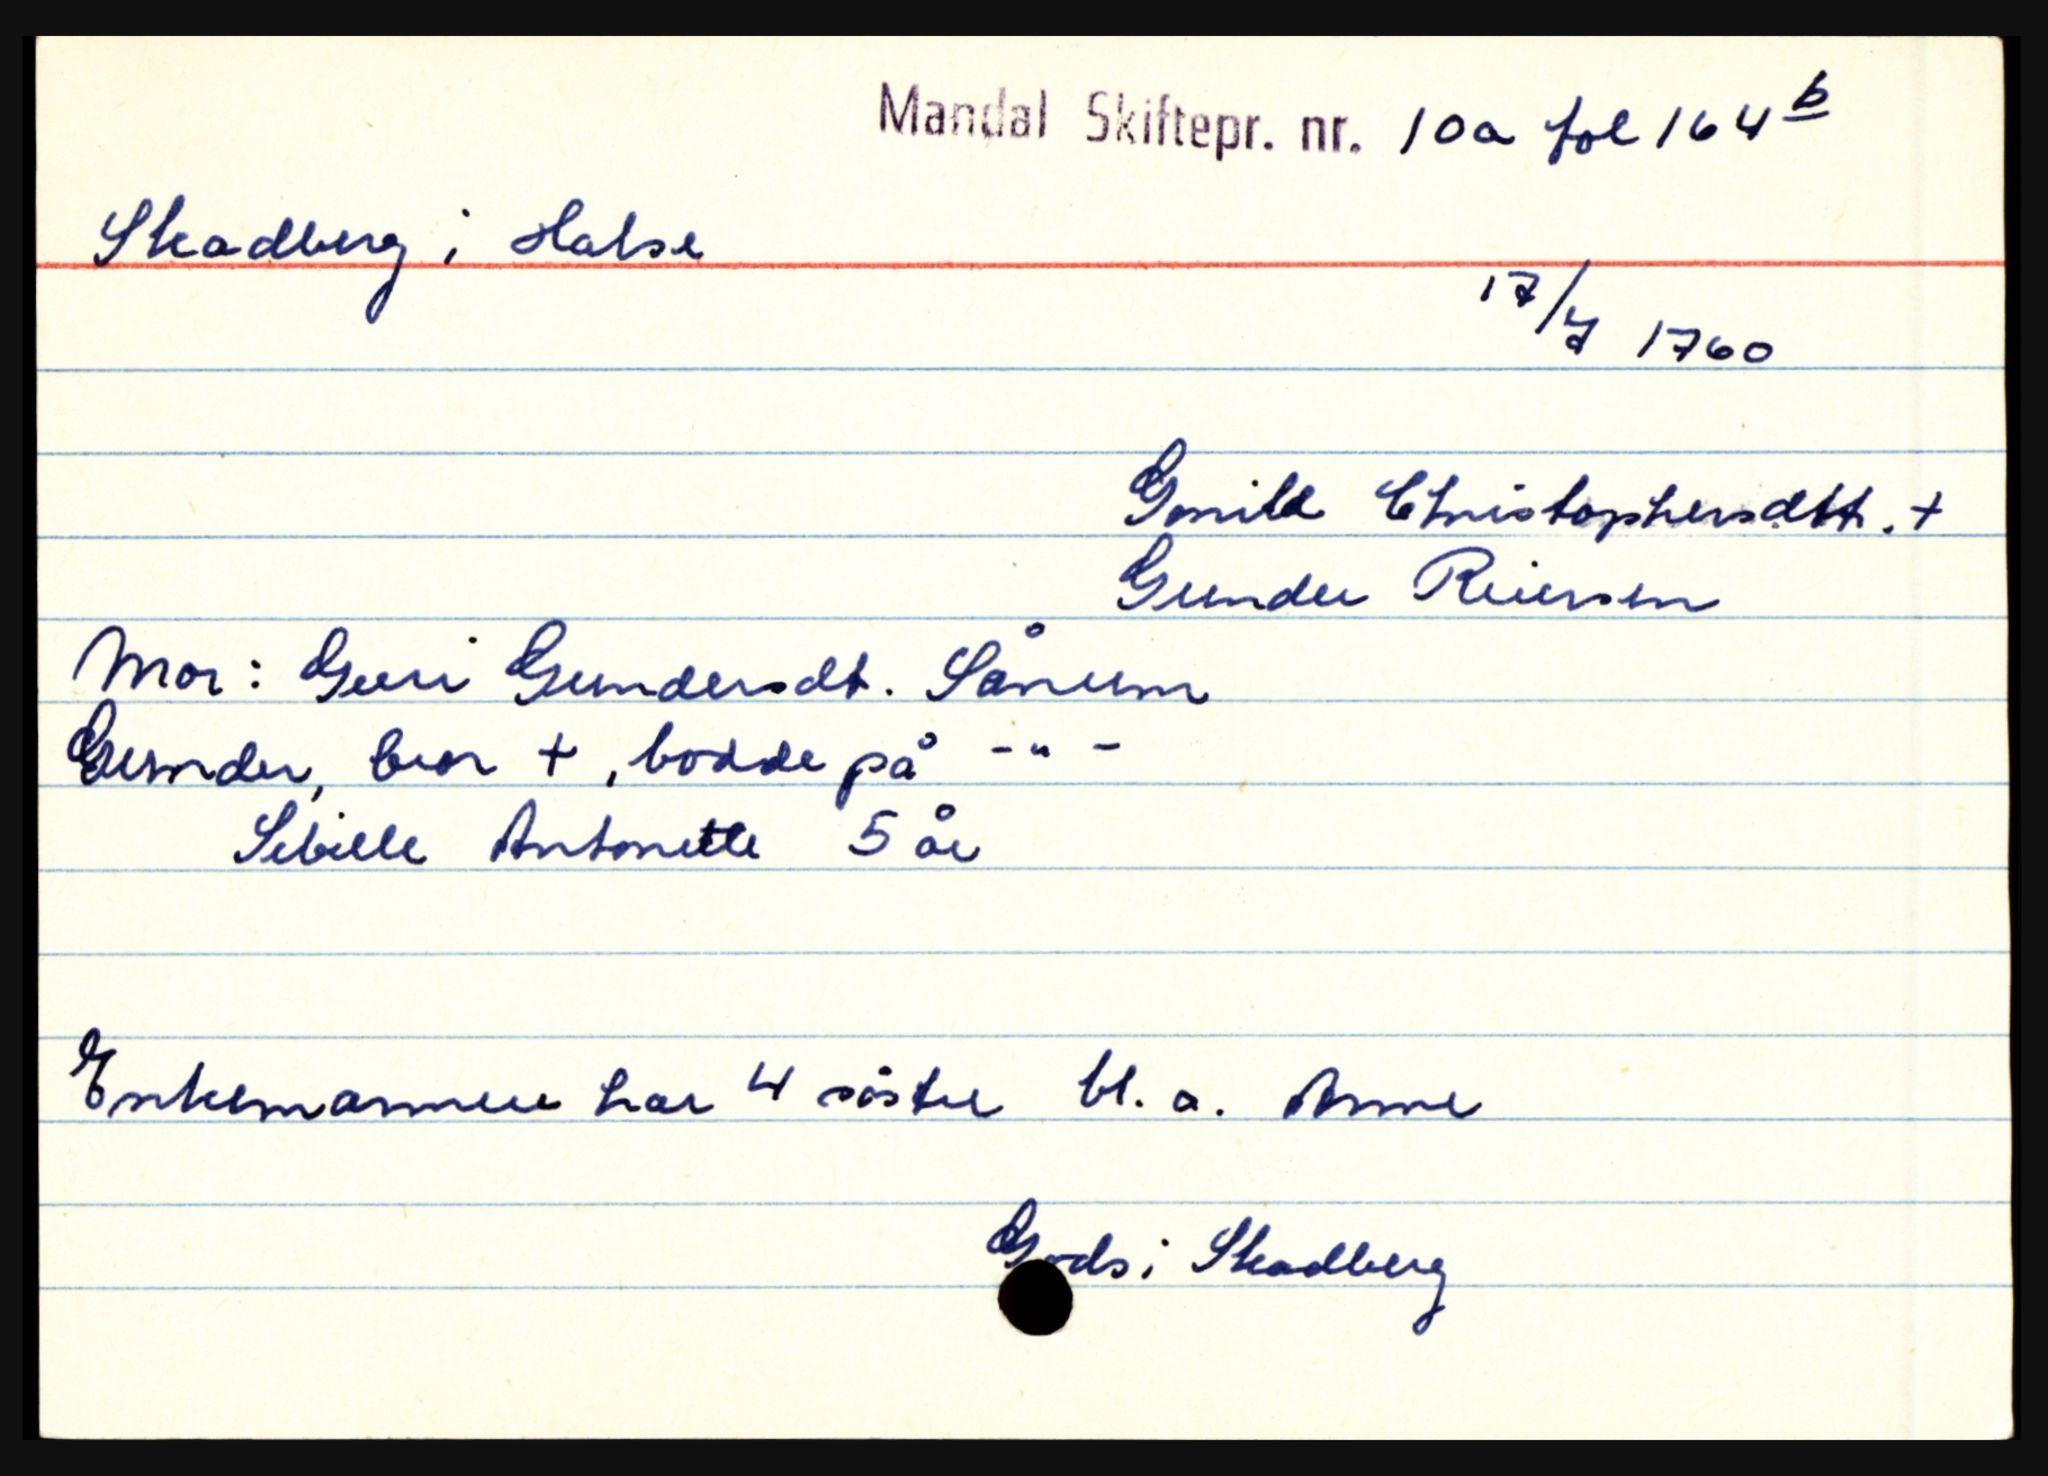 Mandal Skiftepr. nr. 10a fol 164 b
Skadberg i Halse
17/7 1760
Gonild Christophersdtt. +
Gunder Reiersen
Mor: Guri Gundersdt. Sånum
Gunder, bror +, bodde på - " -
Sibille Antonette 5 år
Enkemannen har 4 söstre bl. a. Anne
Gods i Skadberg